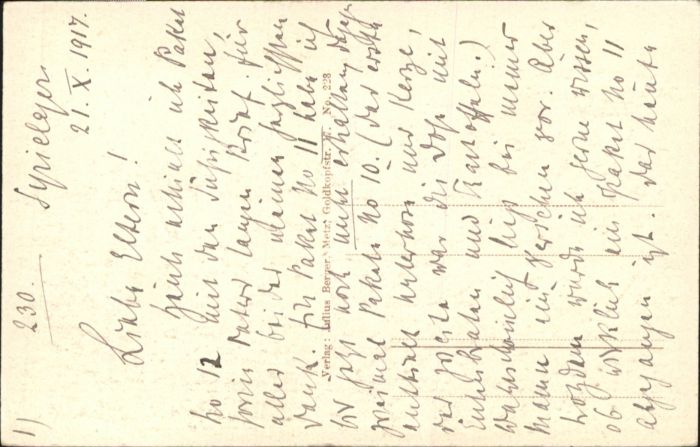 1) 230.
Spielberg
21. X. 1917.
Liebe Eltern!
Heute erhielt ich Paket
No 12 mit den Süßigkeiten,
sowie Vaters langen Brief. Für
alles bei der meinen herzlichsten
Dank. Ein Paket No 11 habe ich
bis jetzt noch nicht erhalten, dagegen
zweimal Paket No 10. (Das erste
enthielt Unterhose und Kerze,
das zweite war die Dose mit
und Kartoffeln.)
Wahrscheinlich liegt bei meiner
Mama ein Versehen vor. Aber
trotzdem würde ich gerne wissen,
ob wirklich ein Paket No 11
abgegangen ist. Das heute
Verlag: Julius Berger, Metz, Goldkopfstr. No. 228